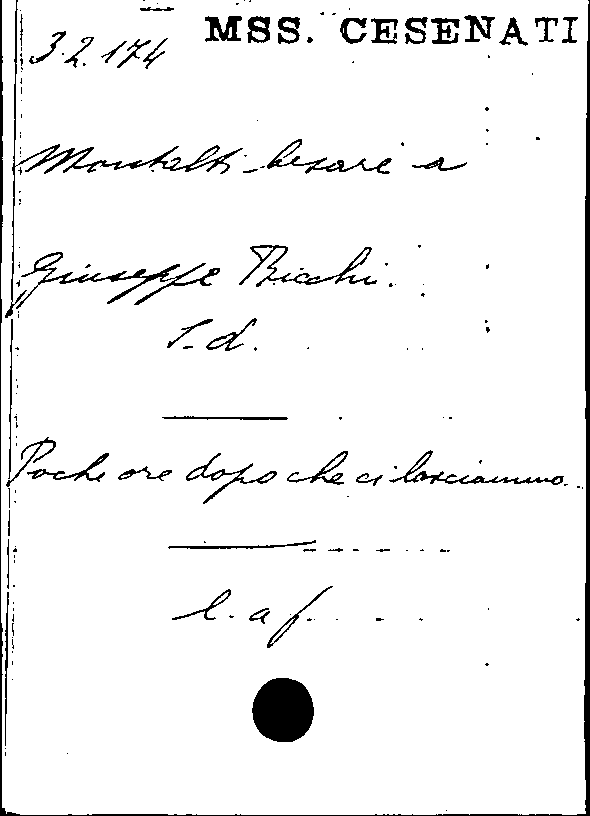 MSS. CESENATI
3.2.174
Montalti Cesare a
Giuseppe Bicchi.
s.d.
Poche ore dopo che ci lasciammo.
l. a f.